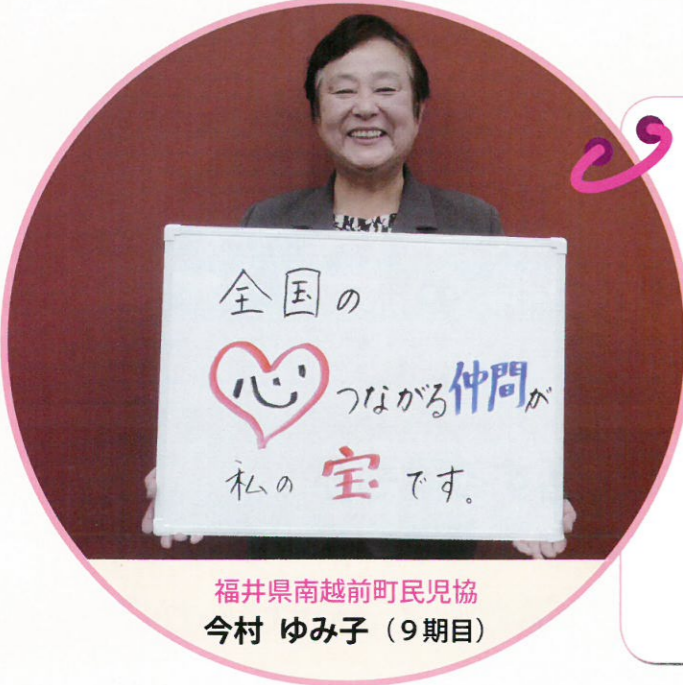 全国の
心つながる仲間が
私の宝です。
福井県南越前町民児協
今村 ゆみ子（9期目）